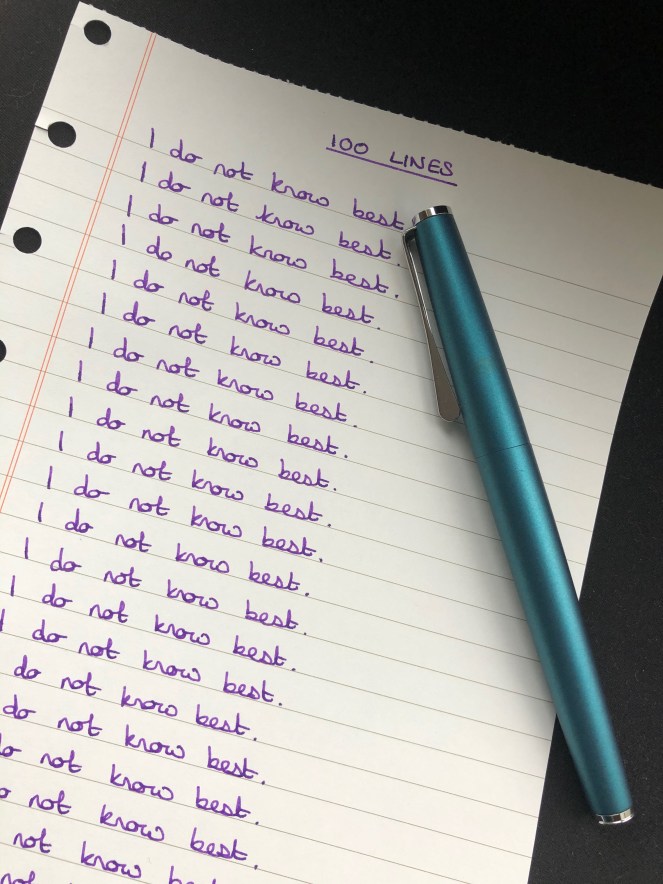 100 LINES
I do not know best.
I do not know best.
I do not know best.
I do not know best.
I do not know best.
I do not know best.
I do not know best.
I do not know best.
I do not know best.
I do not know best.
I do not know best.
I do not know best.
I do not know best.
I do not know best.
I do not know best.
do not know best.
do not know best.
not know best.
not know best.
not know
not